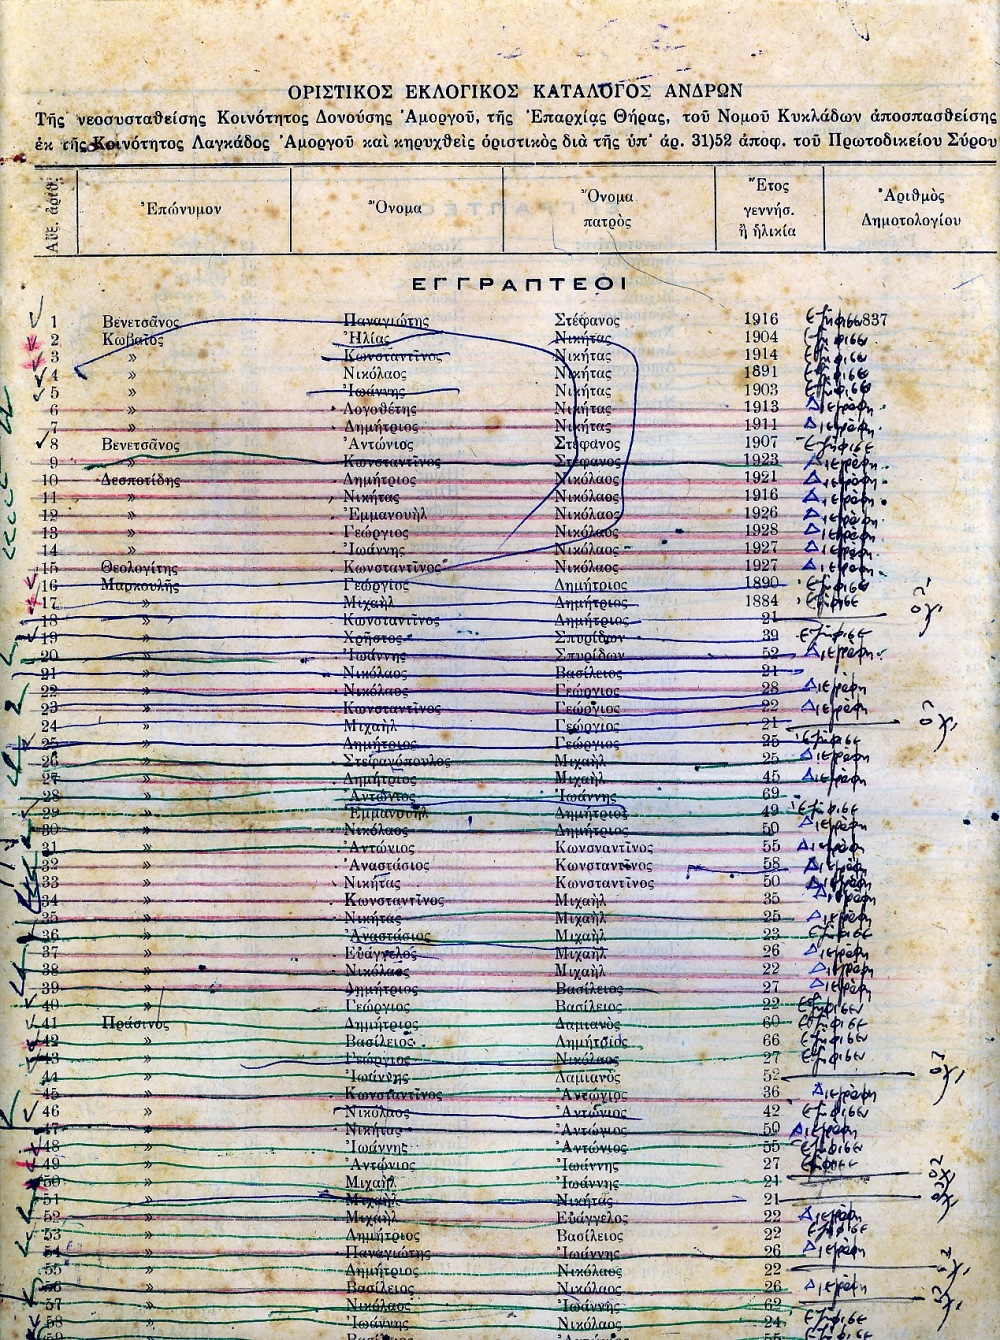 ΟΡΙΣΤΙΚΟΣ ΕΚΛΟΓΙΚΟΣ ΚΑΤΑΛΟΓΟΣ ΑΝΔΡΩΝ
Τῆς νεοσυσταθείσης Κοινότητος Δονούσης Ἀμοργοῦ, τῆς Ἐπαρχίας Θήρας, τοῦ Νομοῦ Κυκλάδων ἀποσπασθείσης
ἐκ τῆς Κοινότητος Λαγκάδος Ἀμοργοῦ καὶ κηρυχθεὶς ὁριστικὸς διὰ τῆς ὑπ' ἀρ. 31)52 ἀποφ. τοῦ Πρωτοδικείου Σύρου
Αὔξ. ἀριθ. Ἐπώνυμον Ὄνομα Ὄνομα πατρὸς Ἔτος γεννήσ. ἢ ἡλικία Ἀριθμὸς Δημοτολογίου
ΕΓΓΡΑΠΤΕΟΙ
1 Βενετσᾶνος Παναγιώτης Στέφανος 1916 837
2 Κωβαῖος Ἠλίας Νικήτας 1904 ἐψήφισε
3 » Κωνσταντῖνος Νικήτας 1914 ἐψήφισε
4 » Νικόλαος Νικήτας 1891 ἐψήφισε
5 » Ἰωάννης Νικήτας 1903 ἐψήφισε
6 » Λογοθέτης Νικήτας 1913 Διεγράφη
7 » Δημήτριος Νικήτας 1911 Διεγράφη
8 Βενετσᾶνος Ἀντώνιος Στέφανος 1907 ἐψήφισε
9 » Κωνσταντῖνος Στέφανος 1923 Διεγράφη
10 Δεσποτίδης Δημήτριος Νικόλαος 1921 Διεγράφη
11 » Νικήτας Νικόλαος 1916 Διεγράφη
12 » Ἐμμανουὴλ Νικόλαος 1926 Διεγράφη
13 » Γεώργιος Νικόλαος 1928 Διεγράφη
14 » Ἰωάννης Νικόλαος 1927 Διεγράφη
15 Θεολογίτης Κωνσταντῖνος Νικόλαος 1927 Διεγράφη
16 Μαρκουλῆς Γεώργιος Δημήτριος 1890 ἐψήφισε
17 » Μιχαὴλ Δημήτριος 1884 ἐψήφισε
18 » Κωνσταντῖνος Δημήτριος 21 ὄχι
19 » Χρῆστος Σπυρίδων 39 ἐψήφισε
20 » Ἰωάννης Σπυρίδων 52 Διεγράφη
21 » Νικόλαος Βασίλειος 21
22 » Νικόλαος Γεώργιος 28 Διεγράφη
23 » Κωνσταντῖνος Γεώργιος 22 Διεγράφη
24 » Μιχαὴλ Γεώργιος 21 ὄχι
25 » Δημήτριος Γεώργιος 25 ἐψήφισε
26 » Στεφανόπουλος Μιχαὴλ 25 Διεγράφη
27 » Δημήτριος Μιχαὴλ 45 Διεγράφη
28 » Ἀντώνιος Ἰωάννης 69
29 » Ἐμμανουὴλ Δημήτριος 49 ἐψήφισε
30 » Νικόλαος Δημήτριος 50 Διεγράφη
31 » Ἀντώνιος Κωνσταντῖνος 55 Διεγράφη
32 » Ἀναστάσιος Κωνσταντῖνος 58 Διεγράφη
33 » Νικήτας Κωνσταντῖνος 50 Διεγράφη
34 » Κωνσταντῖνος Μιχαὴλ 35 Διεγράφη
35 » Νικήτας Μιχαὴλ 25 Διεγράφη
36 » Ἀναστάσιος Μιχαὴλ 23 ἐψήφισε
37 » Εὐάγγελος Μιχαὴλ 26 Διεγράφη
38 » Νικόλαος Μιχαὴλ 22 Διεγράφη
39 » Δημήτριος Βασίλειος 27 Διεγράφη
40 » Γεώργιος Βασίλειος 22 ἐψήφισεν
41 Πράσινος Δημήτριος Δαμιανὸς 60 ἐψήφισε
42 » Βασίλειος Δημήτριος 66 ἐψήφισεν
43 » Γεώργιος Νικόλαος 27 ἐψήφισεν
44 » Ἰωάννης Δαμιανὸς 52 ὄχι
45 » Κωνσταντῖνος Ἀντώνιος 36 Διεγράφη
46 » Νικόλαος Ἀντώνιος 42 ἐψήφισεν
47 » Νικήτας Ἀντώνιος 50 Διεγράφη
48 » Ἰωάννης Ἀντώνιος 55 ἐψήφισε
49 » Ἀντώνιος Ἰωάννης 27 ἐψήφισε
50 » Μιχαὴλ Ἰωάννης 21 ὄχι
51 » Μιχαὴλ Νικήτας 21 ὄχι
52 » Μιχαὴλ Εὐάγγελος 22 Διεγράφη
53 » Δημήτριος Βασίλειος 22 ἐψήφισε
54 » Παναγιώτης Ἰωάννης 26 Διεγράφη
55 » Δημήτριος Νικόλαος 22 ὄχι
56 » Βασίλειος Νικόλαος 26 Διεγράφη
57 » Νικόλαος Ἰωάννης 62 ὄχι
58 » Ἰωάννης Νικόλαος 24 ἐψήφισε
59 » Βασίλειος Ἀντώνιος 55